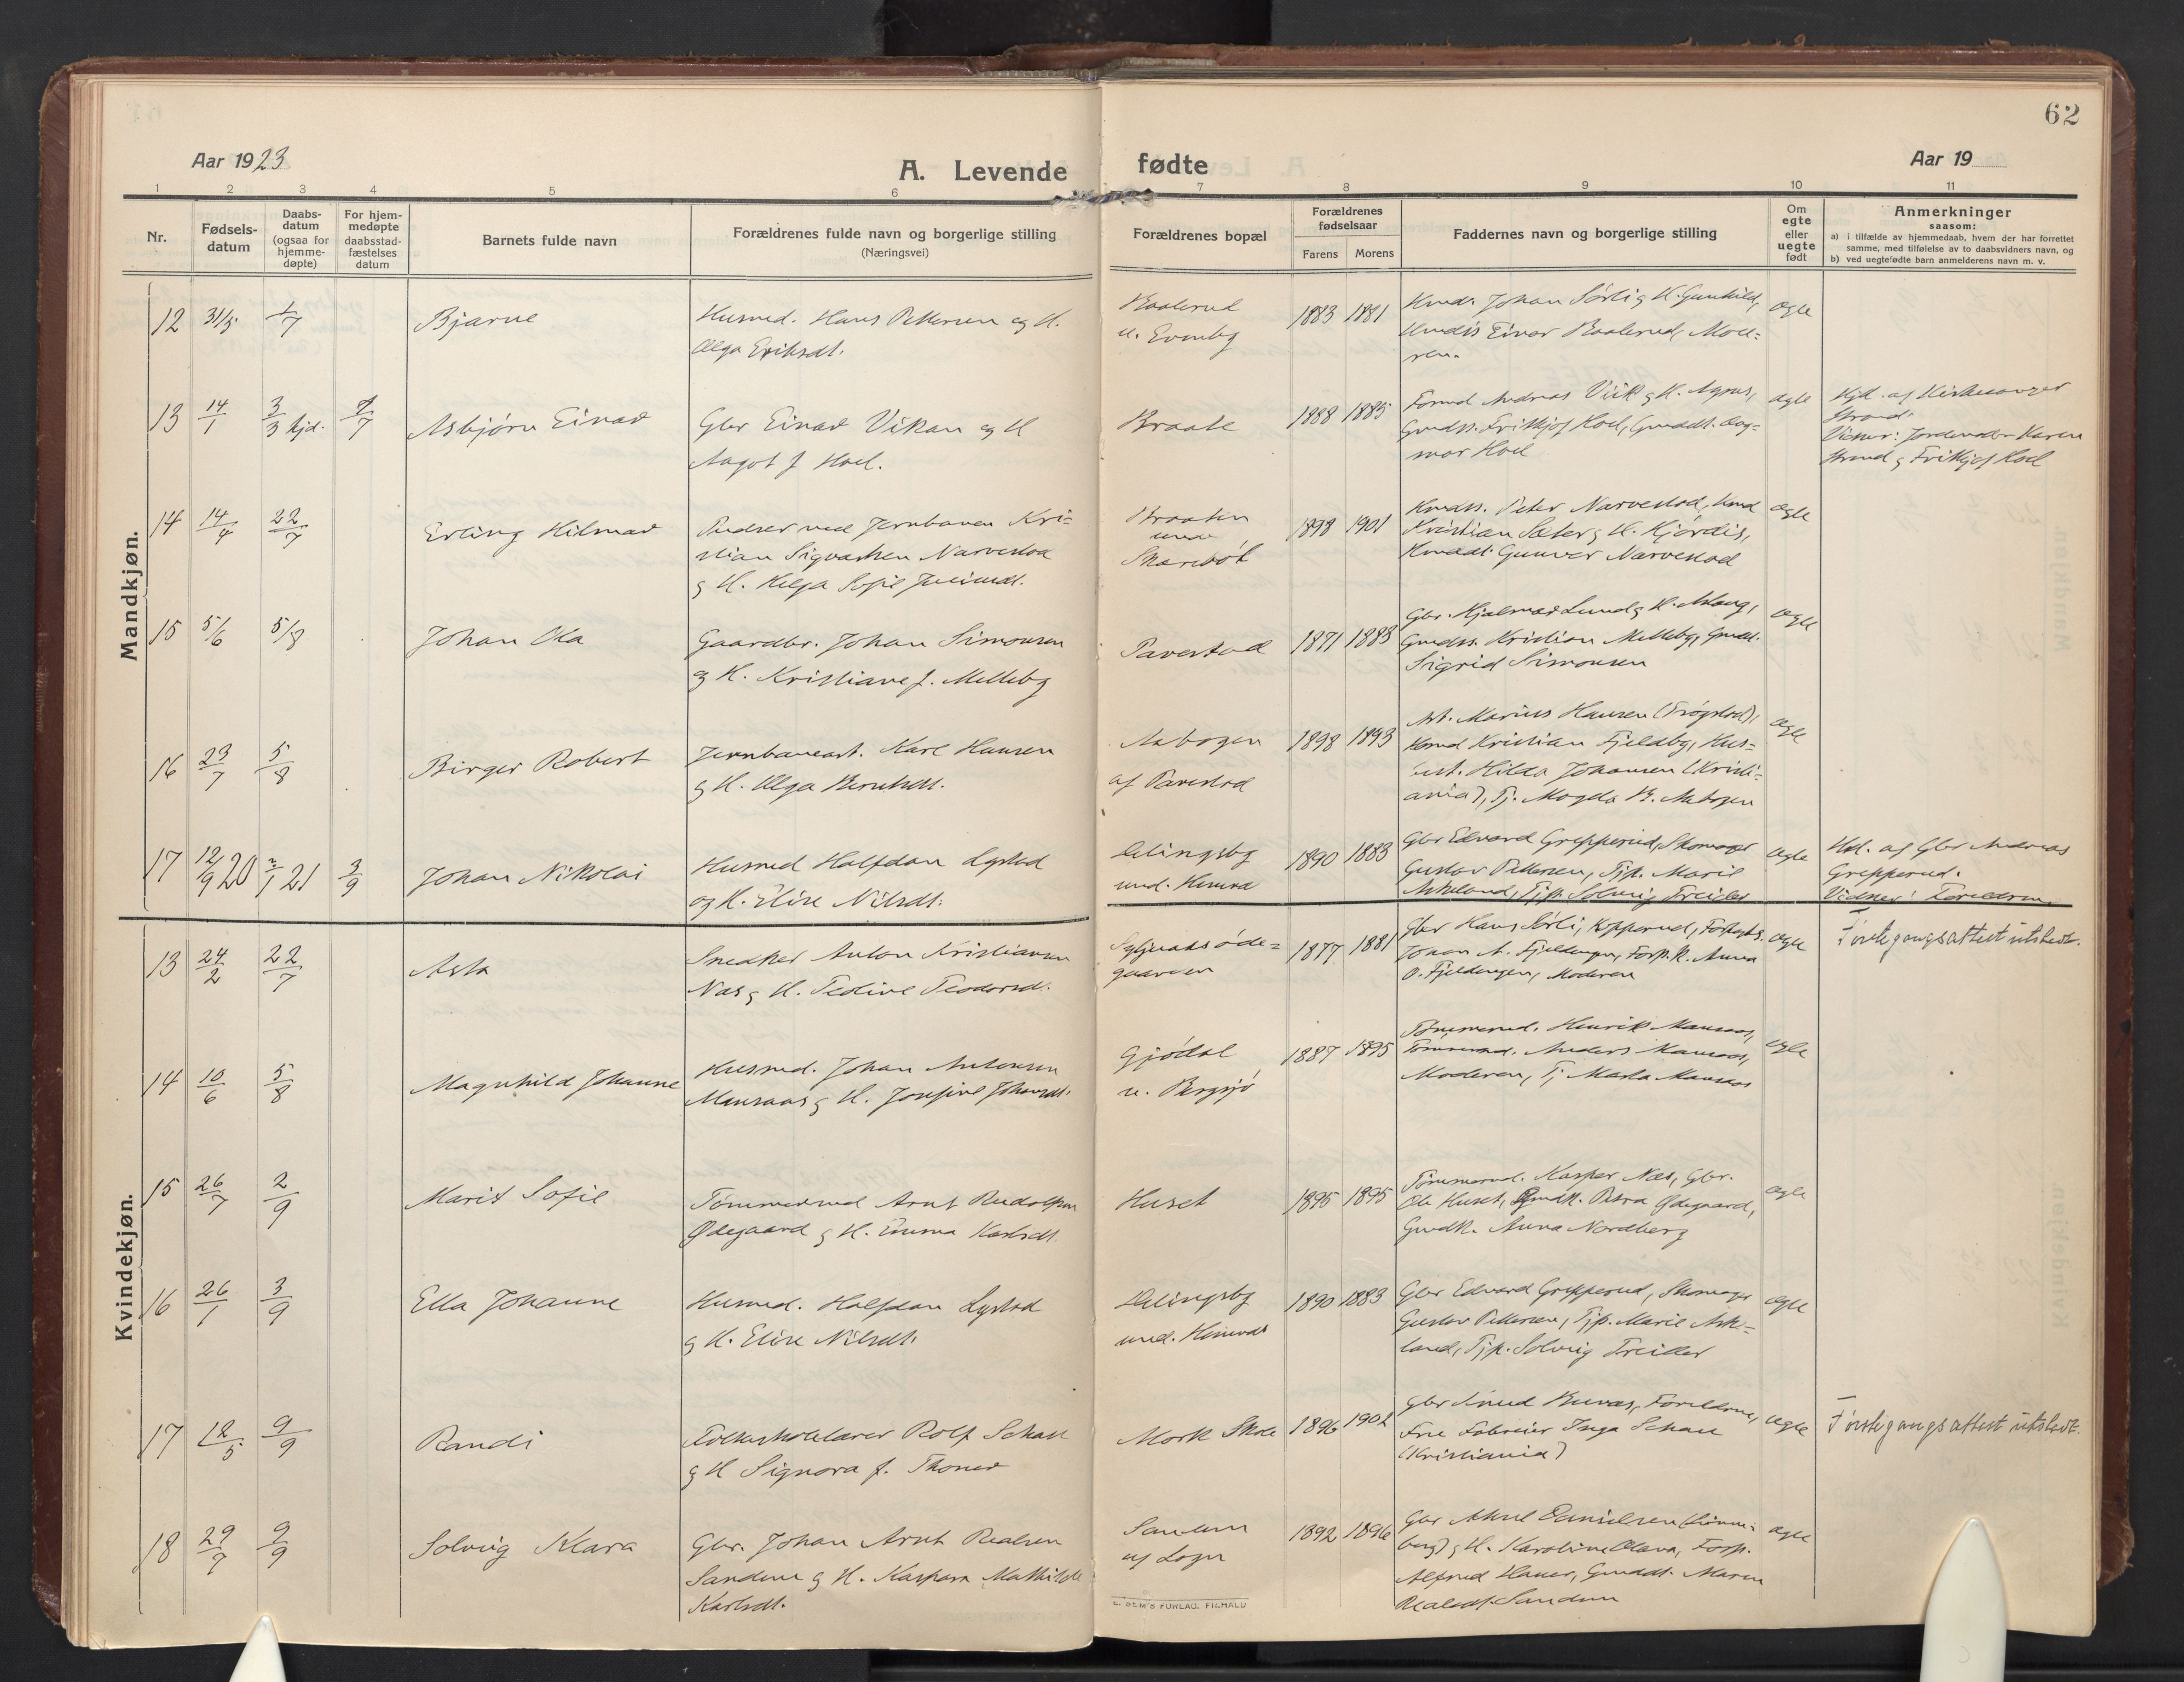 62
Aar 1923
A. Levende fødte
Aar 19
1 2 3 4 5 6 7 8 9 10 11
Nr.
Fødsels-
datum
Daabs-
datum
(ogsaa for
hjemme-
døpte)
For hjem-
medøpte
daabsstad-
fæstelses
datum
Barnets fulde navn
Forældrenes fulde navn og borgerlige stilling
(Næringsvei)
Forældrenes bopæl
Forældrenes
fødselsaar
Farens Morens
Faddernes navn og borgerlige stilling
Om
egte
eller
uegte
født
Anmerkninger
saasom:
a) i tilfælde av hjemmedaab, hvem der har forrettet
samme, med tilføielse av to daabsvidners navn, og
b) ved uegtefødte barn anmelderens navn m. v.
Mandkjøn.
12 31/5 1/7
Bjarne
Husmd. Hans Pettersen og H.
Olga Eriksdt.
1883 1881
Kmd. Johan Sørli og H. Gunhild,
Einar
ægte
13 14/1 3/3 hjd. 1/7
Asbjørn Einar
Gbr Einar Vikan og H
Aagot f. Hoel.
Braate
1888 1885
Andreas Viik og H. Agnes,
Gmdss. Frithjof Hoel, Gmddt. Dag-
mar Hoel
ægte
Hjd. af Kirkesanger
Strand.
Vidner: Jordmoder Karen
Strand og Frithjof Hoel
14 14/4 22/7
Erling Hilmar
Pudser ved Jernbanen Kri-
stian Sigvartsen Narvestad
og H. Helga Sofie
Braaten
under
Skarebøl
1898 1901
Kmdss. Peter Narvestad, Kmd
Kristian Sæter og H. Hjørdis,
Kmddt. Gunvor Narvestad
ægte
15 5/6 5/8
Johan Ola
Gaardbr. Johan Simonsen
og H. Kristiane f. Melleby
Tavestad
1871 1883
Gbr. Hjalmar Lund og H. Aslaug,
Gmdss. Kristian Melleby, Gmddt.
Sigrid Simonsen
ægte
16 23/7 5/8
Birger Robert
Jernbanearb. Karl Hansen
og H. Olga Berntsdt.
Aabogen
af Tavestad
1898 1893
Arb. Marius Hansen (Trøgstad),
Kristian Fjeldby, Hus-
best. Hilda Johansen (Kristi-
ania), Tj. Magda B. Aabogen
ægte
17 12/9 20 2/1 21 3/9
Johan Nikolai
Husmd Halfdan Lystad
og H. Elise Nilsdt.
1890 1883
Gbr Edvard Grepperud, Skomager
Gustav Pettersen, Tjp. Marie
Askeland, Tjp. Solveig Treider
ægte
Hd. af Gbr Andreas
Grepperud.
Vidner: Foreldrene
Kvindekjøn.
13 24/2 22/7
Asta
Snedker Anton Kristiansen
Næs og H. Tedine Teodorsdt.
1877 1881
Gbr Hans Sørli,
Johan A. Fjeldengen, Forp. k. Anna
O. Fjeldengen, Moderen
ægte
Førstegangsattest utstedt.
14 10/6 5/8
Magnhild Johanne
Husmd. Johan Antonsen
og H. Josefine Johansdt.
Gjødal
u. Bergsjø
1887 1895
Tømmermd. Henrik
Tømmermd. Anders
Moderen, Tj. Marta
ægte
15 26/7 2/9
Marit Sofie
Tømmermd Arnt Rudolfsen
Ødegaard og H. Emma Karlsdt.
Huset
1895 1895
Tømmermd. Kasper Næs, Gbr.
Ole Huset, Gmdk. Petra Ødegaard,
Gmdk. Anna Nordberg
ægte
16 26/1 3/9
Ella Johanne
Husmd. Halfdan Lystad
og H. Elise Nilsdt.
1890 1883
Gbr Edvard Grepperud, Skomager
Gustav Pettersen, Tjp. Marie Aske-
land, Tjp. Solveig Treider
ægte
17 12/5 9/9
Randi
Folkeskolelærer Rolf Schau
og H Signora f. Thoner
Mork Skole
1896 1902
Foreldrene,
Frue Inga Schau
(Kristiania)
ægte
Førstegangsattest utstedt.
18 29/7 9/9
Solveig Klara
Gbr. Johan Arnt Realsen
Sanden og H. Kaspara Mathilde
Karlsdt.
Sanden
1892 1896
Gbr Aksel Danielsen
og H. Karoline Olava, Forp.
Alfred Hauer, Gmddt. Maren
Realsdt. Sanden
ægte
E. SEM'S FORLAG. FR.HALD